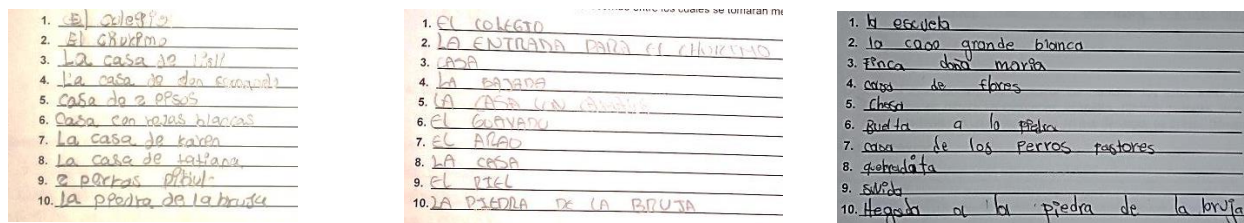 1. El colegio
2. El churimo
3. La casa de lisll
4. La casa de don
5. casa de 2 pesos
6. Casa con rejas blancas
7. La casa de karen
8. La casa de tatiana
9. 2 perras pitbul
10. la piedra de la bruja
entre los cuales se tomarán
1. EL COLEGIO
2. LA ENTRADA PARA EL CHURIMO
3. CASA
4. LA BAJADA
5. LA CASA CON
6. EL GUAYABO
7. EL ARAO
8. LA CASA
9. EL RIEL
10. LA PIEDRA DE LA BRUJA
1. la escuela
2. la casa grande blanca
3. Finca doña maria
4. casa de flores
5. Choza
6. Buelta a la piedra
7. casa de los perros pastores
8. quebradita
9. suvida
10. Llegada a la piedra de la bruja